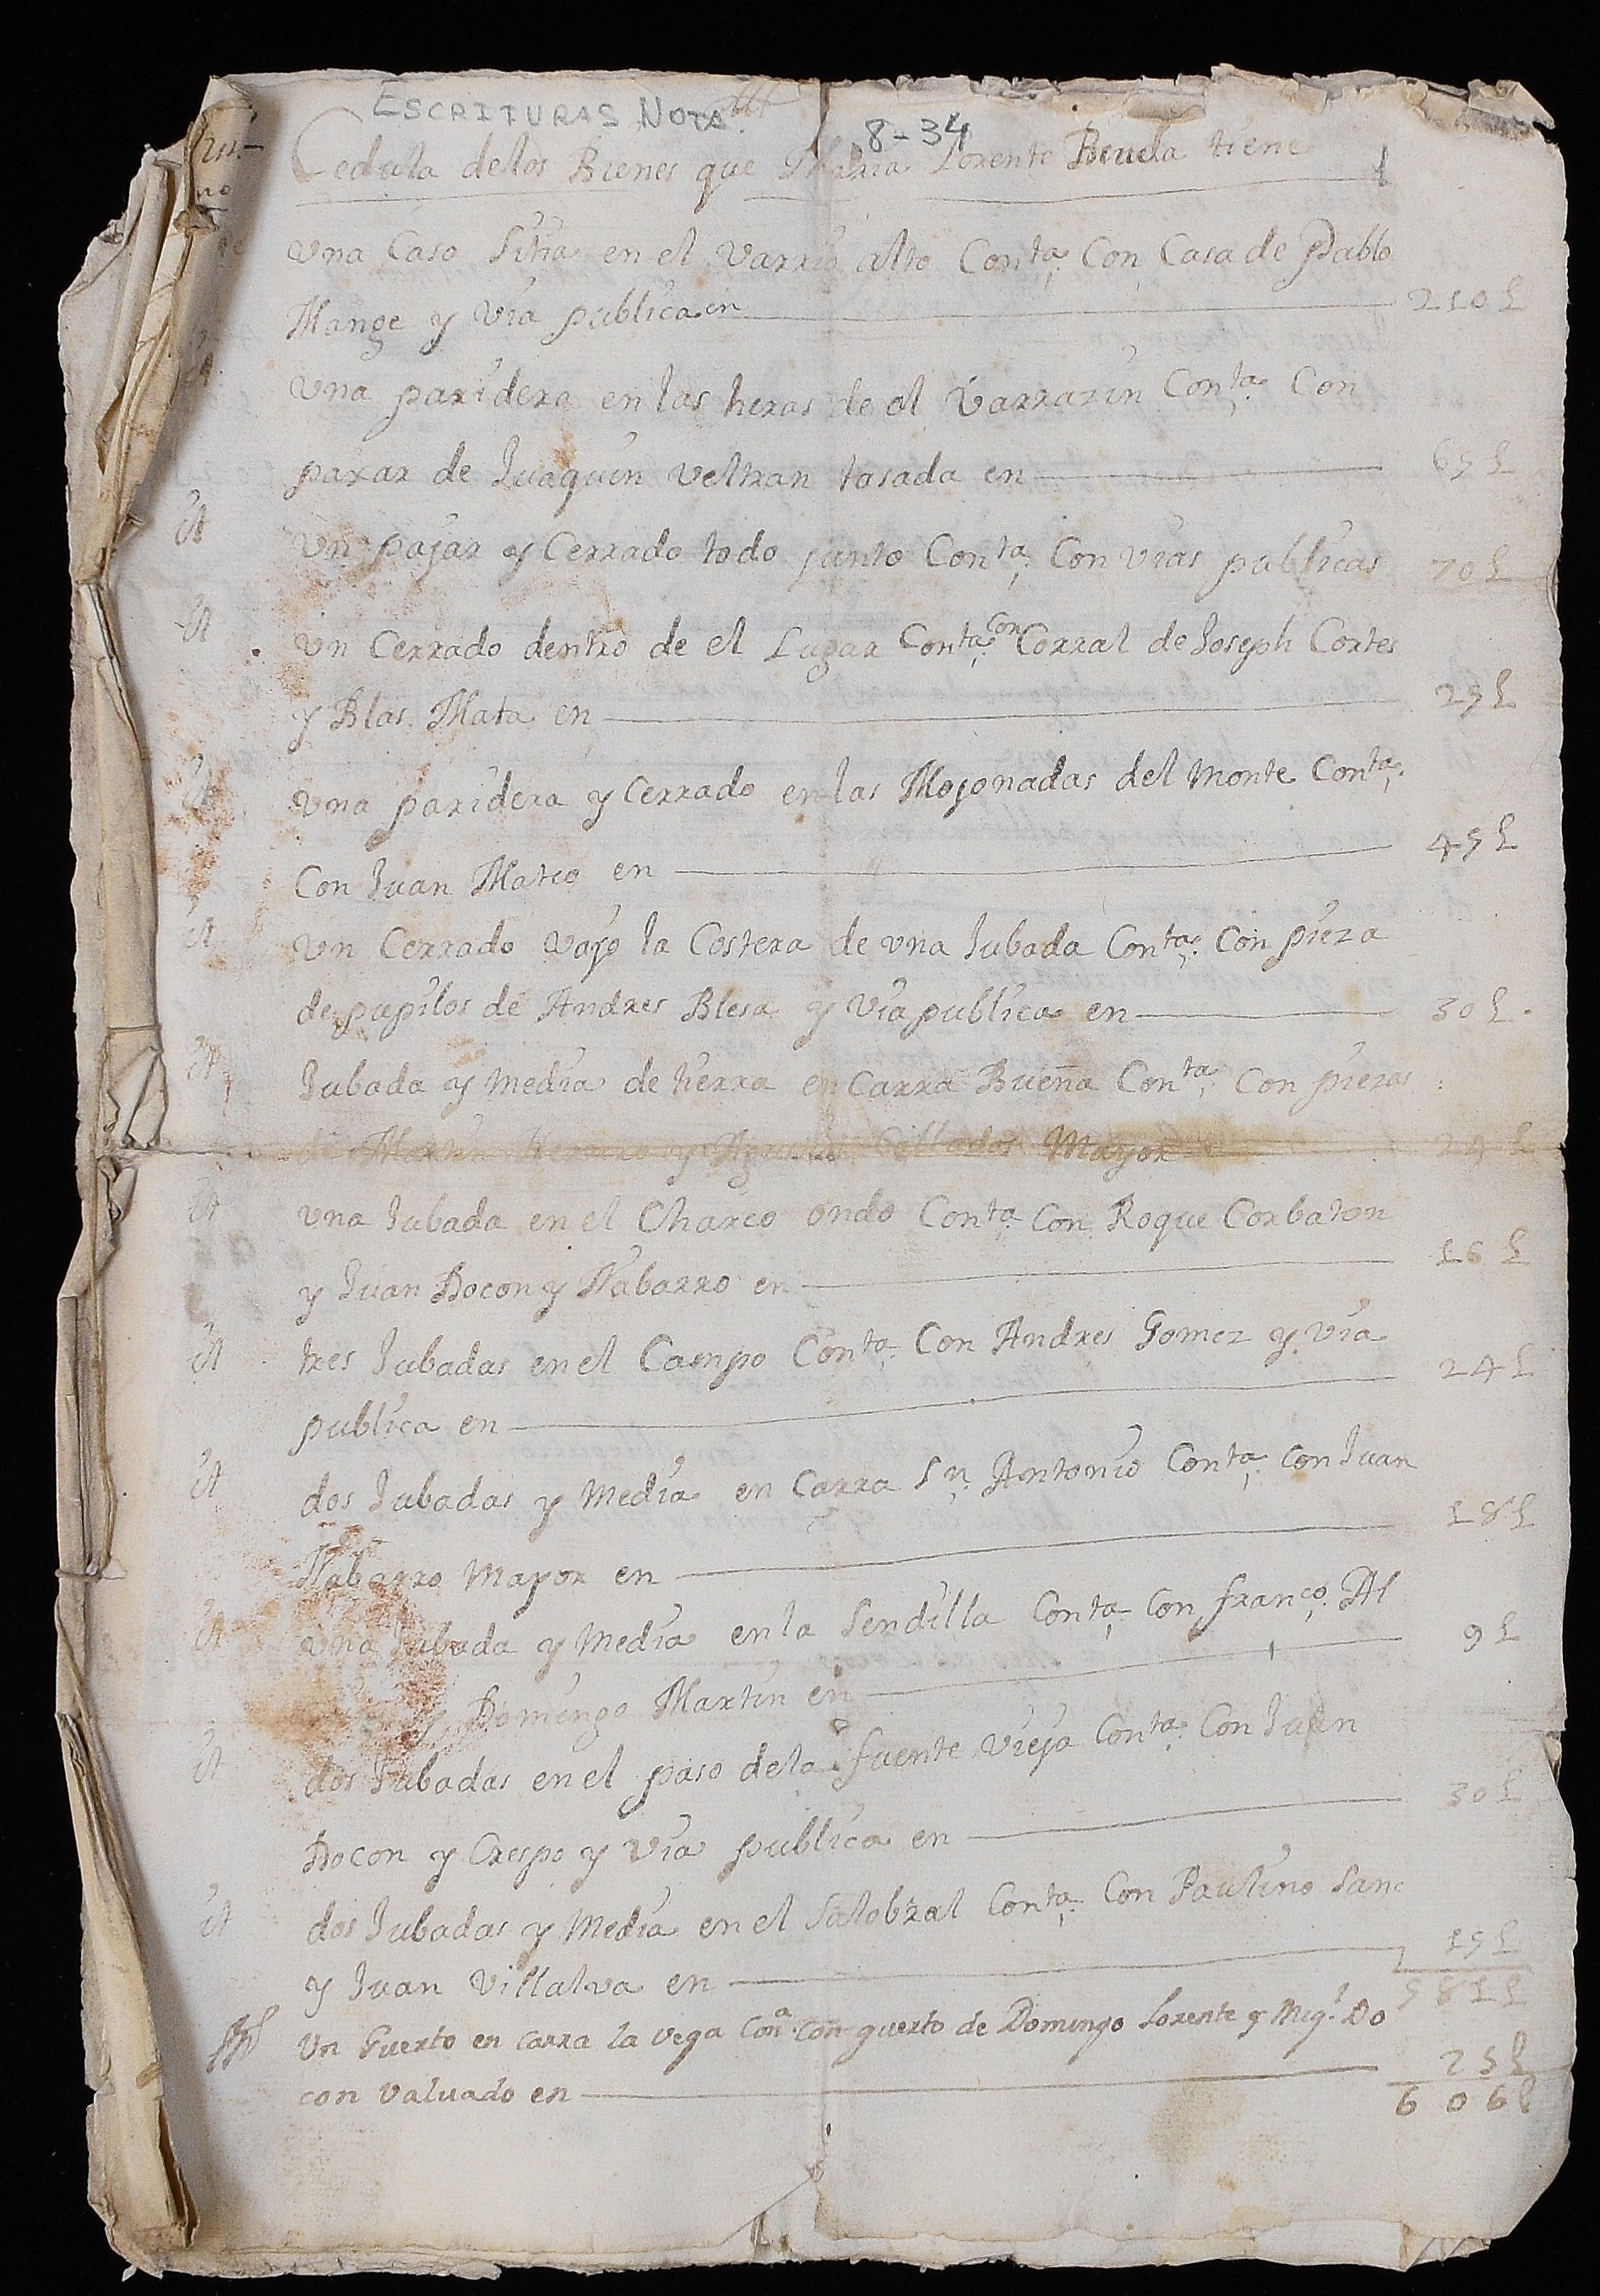 ESCRITURAS NOTA.
8-34
Cedula delos Bienes que Maria Lorente Biuda tiene
1
Vna Casa Sitia en el Varrio alto Conta. Con Casa de Pablo
Mange y Via publica en 210 L
Vna paridera en las heras de el Varrazin Conta. Con
paxar de Juaquin Veltran tasada en 65 L
It Vn pajar y Cerrado todo junto Conta. Con Vias publicas 70 L
It Vn Cerrado dentro de el Lugar Conta. Con Corral de Joseph Cortes
y Blas Mata en 25 L
It Vna paridera y Cerrado en las Mojonadas del Monte Conta.
Con Juan Mateo en 45 L
It Vn Cerrado Vajo la Costera de Vna Jubada Conta. Con pieza
de pupilos de Andres Blesa y Via publica en 30 L.
It Jubada y Media de tierra en Carra Bueña Conta. Con piezas
de Martin y Mayor
It Vna Jubada en el Charco ondo Conta. Con Roque Corbaton
y Juan Docon y Nabarro en 16 L
It tres Jubadas en el Campo Conta. Con Andres Gomez y Via
publica en 24 L
It dos Jubadas y Media en Carra Sn. Antonio Conta. Con Juan
Nabarro Mayor en 18 L
It Vna Jubada y Media en la Sendilla Conta. Con franco. Al
y Domingo Martin en 9 L
It dos Jubadas en el paso de la fuente Vieja Conta. Con Juan
Docon y Crespo y Via publica en 30 L
It dos Jubadas y Media en el Salobral Conta. Con Paulino Sanc
y Juan Villalva en 15 L
581 L
Vn Guerto en carra la vega Cona. con guerto de Domingo Lorente y Migl. Do
con Valuado en 25 L
606 L